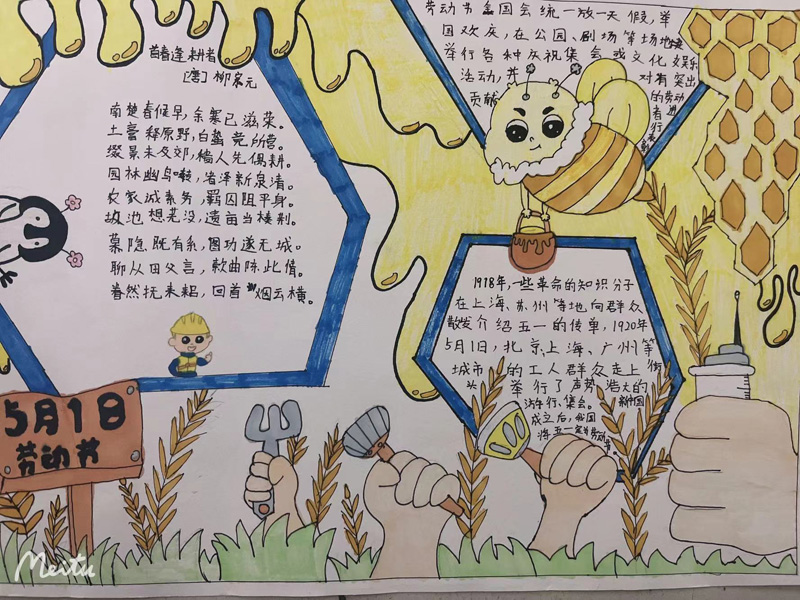 首春逢耕者
[唐] 柳宗元
南楚春候早，余寒已滋荣。
土膏释原野，白蛰竞所营。
缀景未及郊，穑人先偶耕。
园林幽鸟啭，渚泽新泉清。
农家城素务，羁囚阻平身。
故池想芜没，遗亩当榛荆。
慕隐既有系，图功遂无城。
聊从田父言，款曲陈此情。
眷然抚耒耜，回首烟云横。
劳动节全国会统一放一天假，举
国欢庆，在公园、剧场等场地
举行各种庆祝集会或文化娱乐
活动，并对有突出
贡献的劳动
者行
1918年，一些革命的知识分子
在上海、苏州等地向群众
散发介绍五一的传单，1920年
5月1日，北京上海、广州等
城市的工人群众走上街
头举行了声势浩大的
游行、集会。新中国
成立之后，我国
将五一定为劳动节
5月1日
劳动节
Meitu